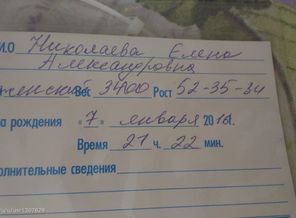 И.О Николаева Елена
Александровна
женский Вес 3400 Рост 52-35-34
а рождения «7» января 2016г.
Время 21 ч. 22 мин.
олнительные сведения